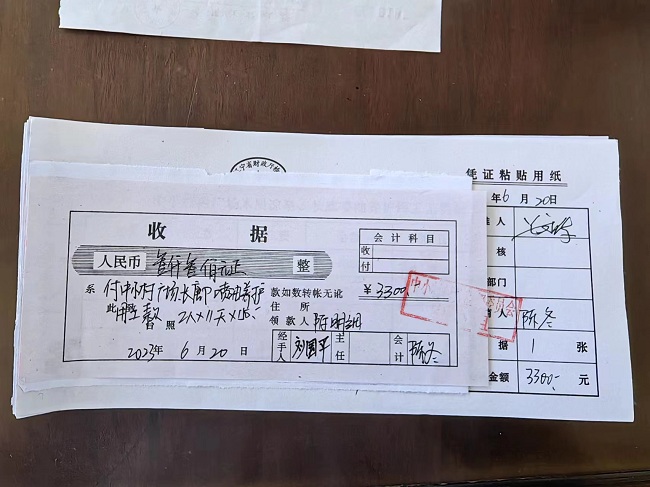 凭证粘贴用纸
年6月20日
收据
会计科目
收
付
人民币 叁仟叁佰元正 整
系 付中心村广场长廊喷油养护 款如数转帐无讹
¥3300
此据 照 2人×11天×150.-
住所
领款人
2023年6月20日
经手人 刘国平 主任 会计 陈冬
人
核
部门
人 陈冬
据 1 张
金额 3300.- 元